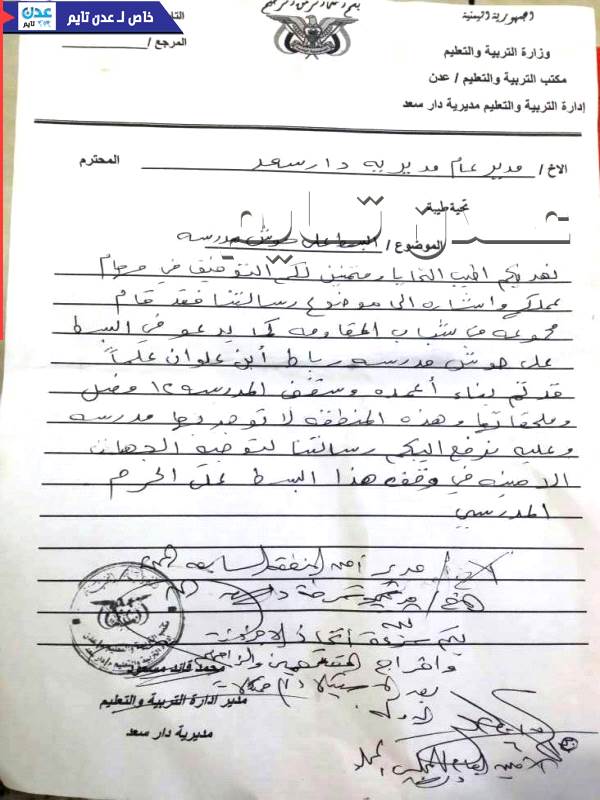 خاص لـ عدن تايم
عدن
تايم
الجمهورية اليمنية
وزارة التربية والتعليم
مكتب التربية والتعليم / عدن
إدارة التربية والتعليم مديرية دار سعد
المرجع /
الاخ / مدير عام مديريه دار سعد المحترم
تحية طيبة
عدن تايم
الموضوع / البسط على حوش مدرسه
نهديكم اطيب التحايا ومتمنين لكم التوفيق في مهام
عملكم واشاره الى موضوع رسالتنا فقد قام
مجموعه من شباب المقاومه كما يدعو في البسط
على حوش مدرسه رباط أبن علوان علماً
قد تم بناء أعمده وسقف المدرسه ١٢ فصل
وملحقاتها وهذه المنطقه لا توجد بها مدرسه
وعليه نرفع اليكم رسالتنا لتوجيه الجهات
الامنيه في وقف هذا البسط على الحرم
المدرسي
الاخ / مدير أمن المنطقه السابعه
الاخ / مدير شرطة دار سعد
يتم سرعة اتخاذ الاجراءات
واخراج المقتحمين
محمد قائد
مدير ادارة التربية والتعليم
مديرية دار سعد